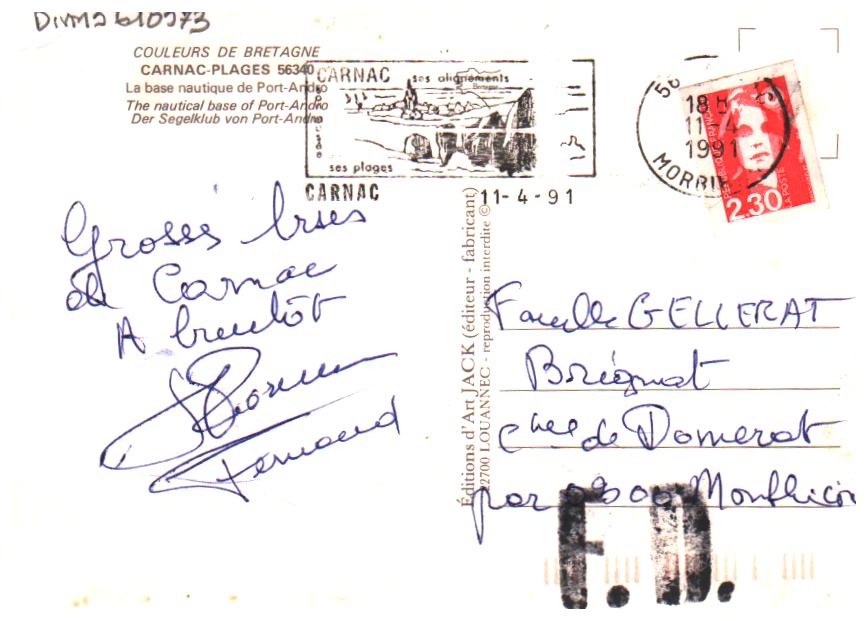 DIVM2610973
COULEURS DE BRETAGNE
CARNAC-PLAGES 56340
La base nautique de Port-Andro
The nautical base of Port-Andro
Der Segelklub von Port-Andro
CARNAC ses alignements
Bretagne
ses plages
CARNAC 11-4-91
56
18 H
11-4
1991
REPUBLIQUE FRANÇAISE
LA POSTE
2.30
Grosses bises
de Carnac
A bientôt
Fernand
Éditions d'Art JACK (éditeur - fabricant)
22700 LOUANNEC - reproduction interdite ©
Famille GELLERAT
Brégnat
Cne de Domerat
par 0300 Montlucon
F.D.